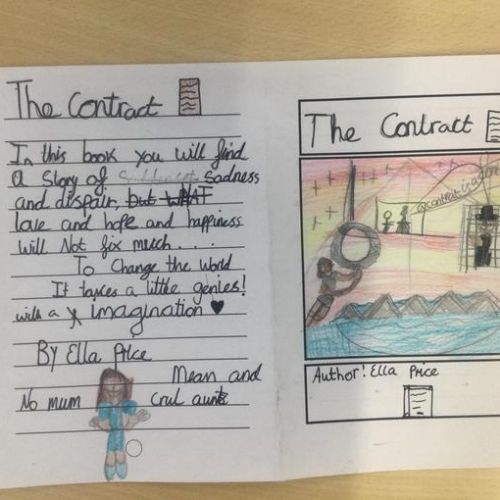 The Contract
In this book you will find
a story of Sadness
and dispair, but WHAT
love and hope and happiness
will Not fix much....
To Change the world
It takes a little genies!
with a imagination
By Ella Price
Mean and
No mum crul aunt
The Contract
Author! Ella Price